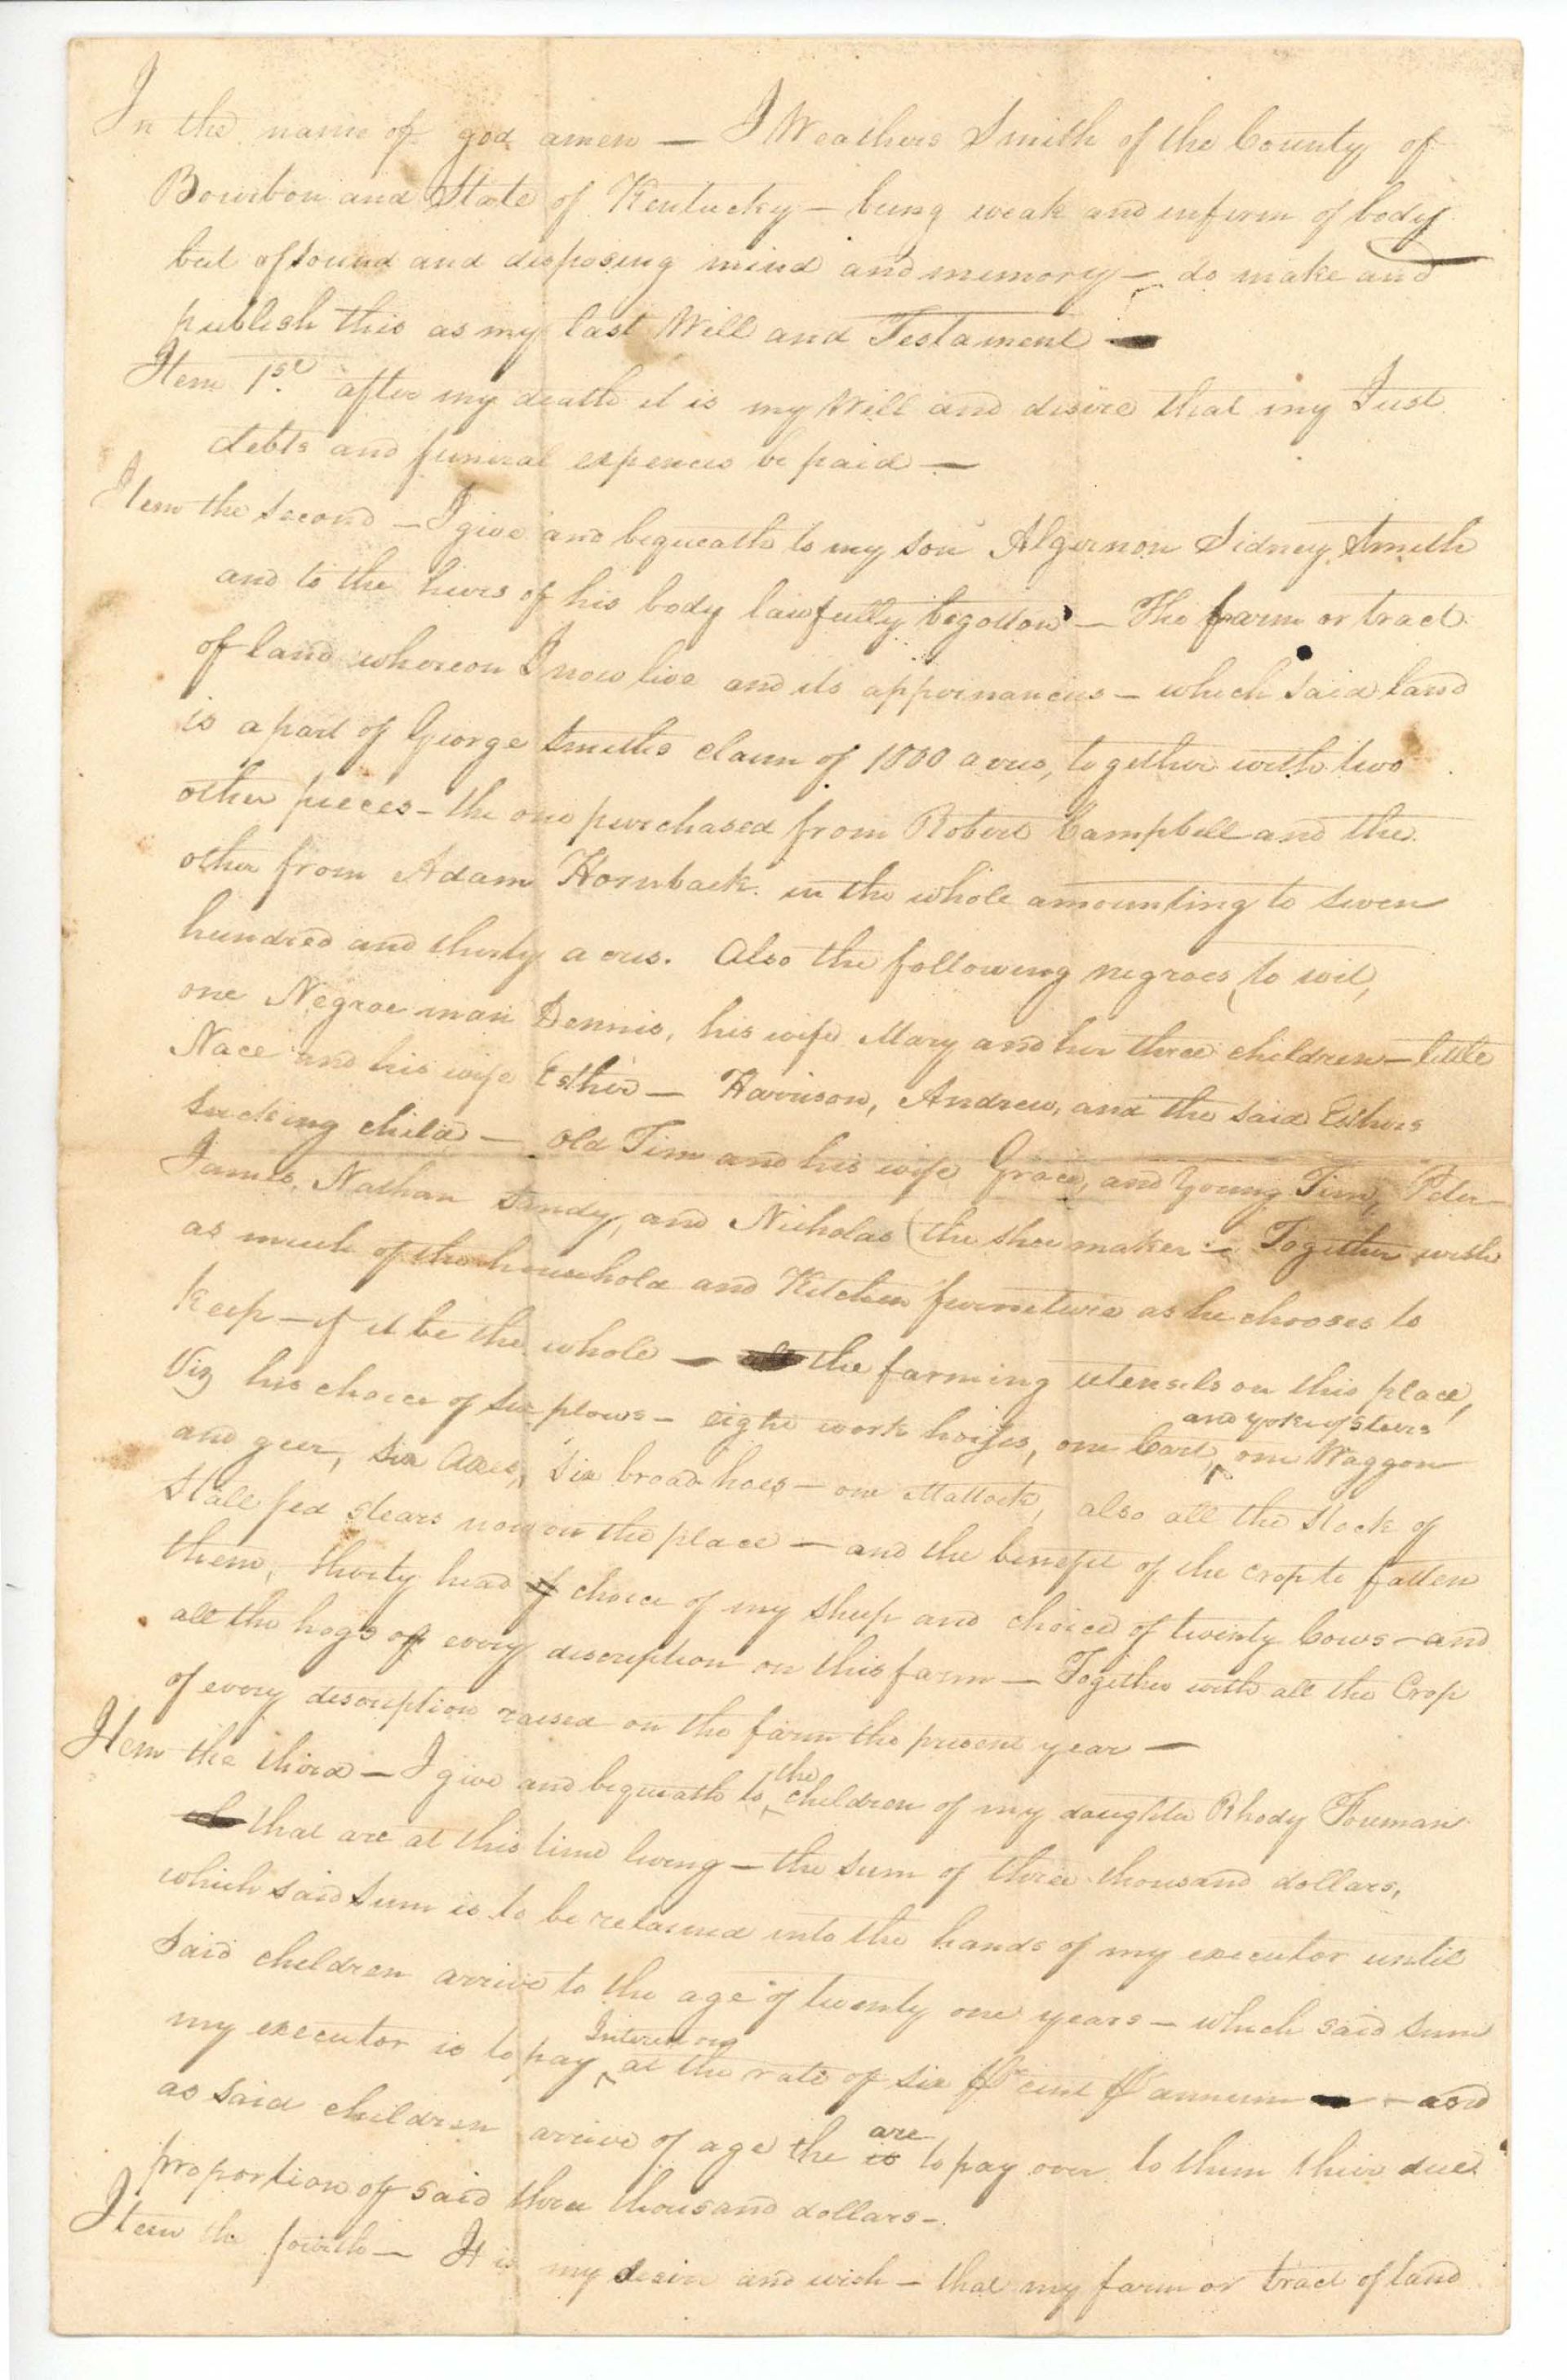 In the name of god amen — I Weathers Smith of the County of
Bourbon and State of Kentucky — being weak and infirm of body
but of sound and disposing mind and memory — do make and
publish this as my last Will and Testament —
Item 1st. after my death it is my Will and desire that my Just
debts and funeral expences be paid —
Item the second — I give and bequeath to my son Algernon Sidney Smith
and to the heirs of his body lawfully begotton — The farm or tract
of land whereon I now live and its appurnancies — which said land
is a part of George Smiths claim of 1000 acres, together with two
other pieces — the one purchased from Robert Campbell and the
other from Adam Hornback. in the whole amounting to seven
hundred and thirty acres. Also the following negroes, to wit,
one Negroe man Dennis, his wife Mary and her three children — little
Nace and his wife Esther — Harrison, Andrew, and the said Esthers
sucking child — old Tim and his wife Grace, and Young Tim, Peter
James, Nathan Sandy, and Nicholas (the shoe maker — Together with
as much of the household and Kitchen furniture as he chooses to
keep — if it be the whole — the farming utensils on this place,
Viz his choice of six plows — eight work horses, one Cart, and yoke of steers one Waggon
and geer, six axes, six broad hoes — one Mattock, also all the stock of
Stall fed stears now on the place — and the benefit of the crop to fatten
them, thirty head of choice of my sheep and choice of twenty Cows — and
all the hogs of every discription on this farm — Together with all the Crop
of every discription raised on the farm the present year —
Item the third — I give and bequeath to the children of my daughter Rhody Foreman
that are at this time living — the sum of three thousand dollars,
which said sum is to be retained into the hands of my executor until
said children arrive to the age of twenty one years — which said sum
my executor is to pay Interest on at the rate of six pr cent pr annum — and
as said children arrive of age the is are to pay over to them their due
proportion of said three thousand dollars —
Item the fourth — It is my desire and wish — that my farm or tract of land